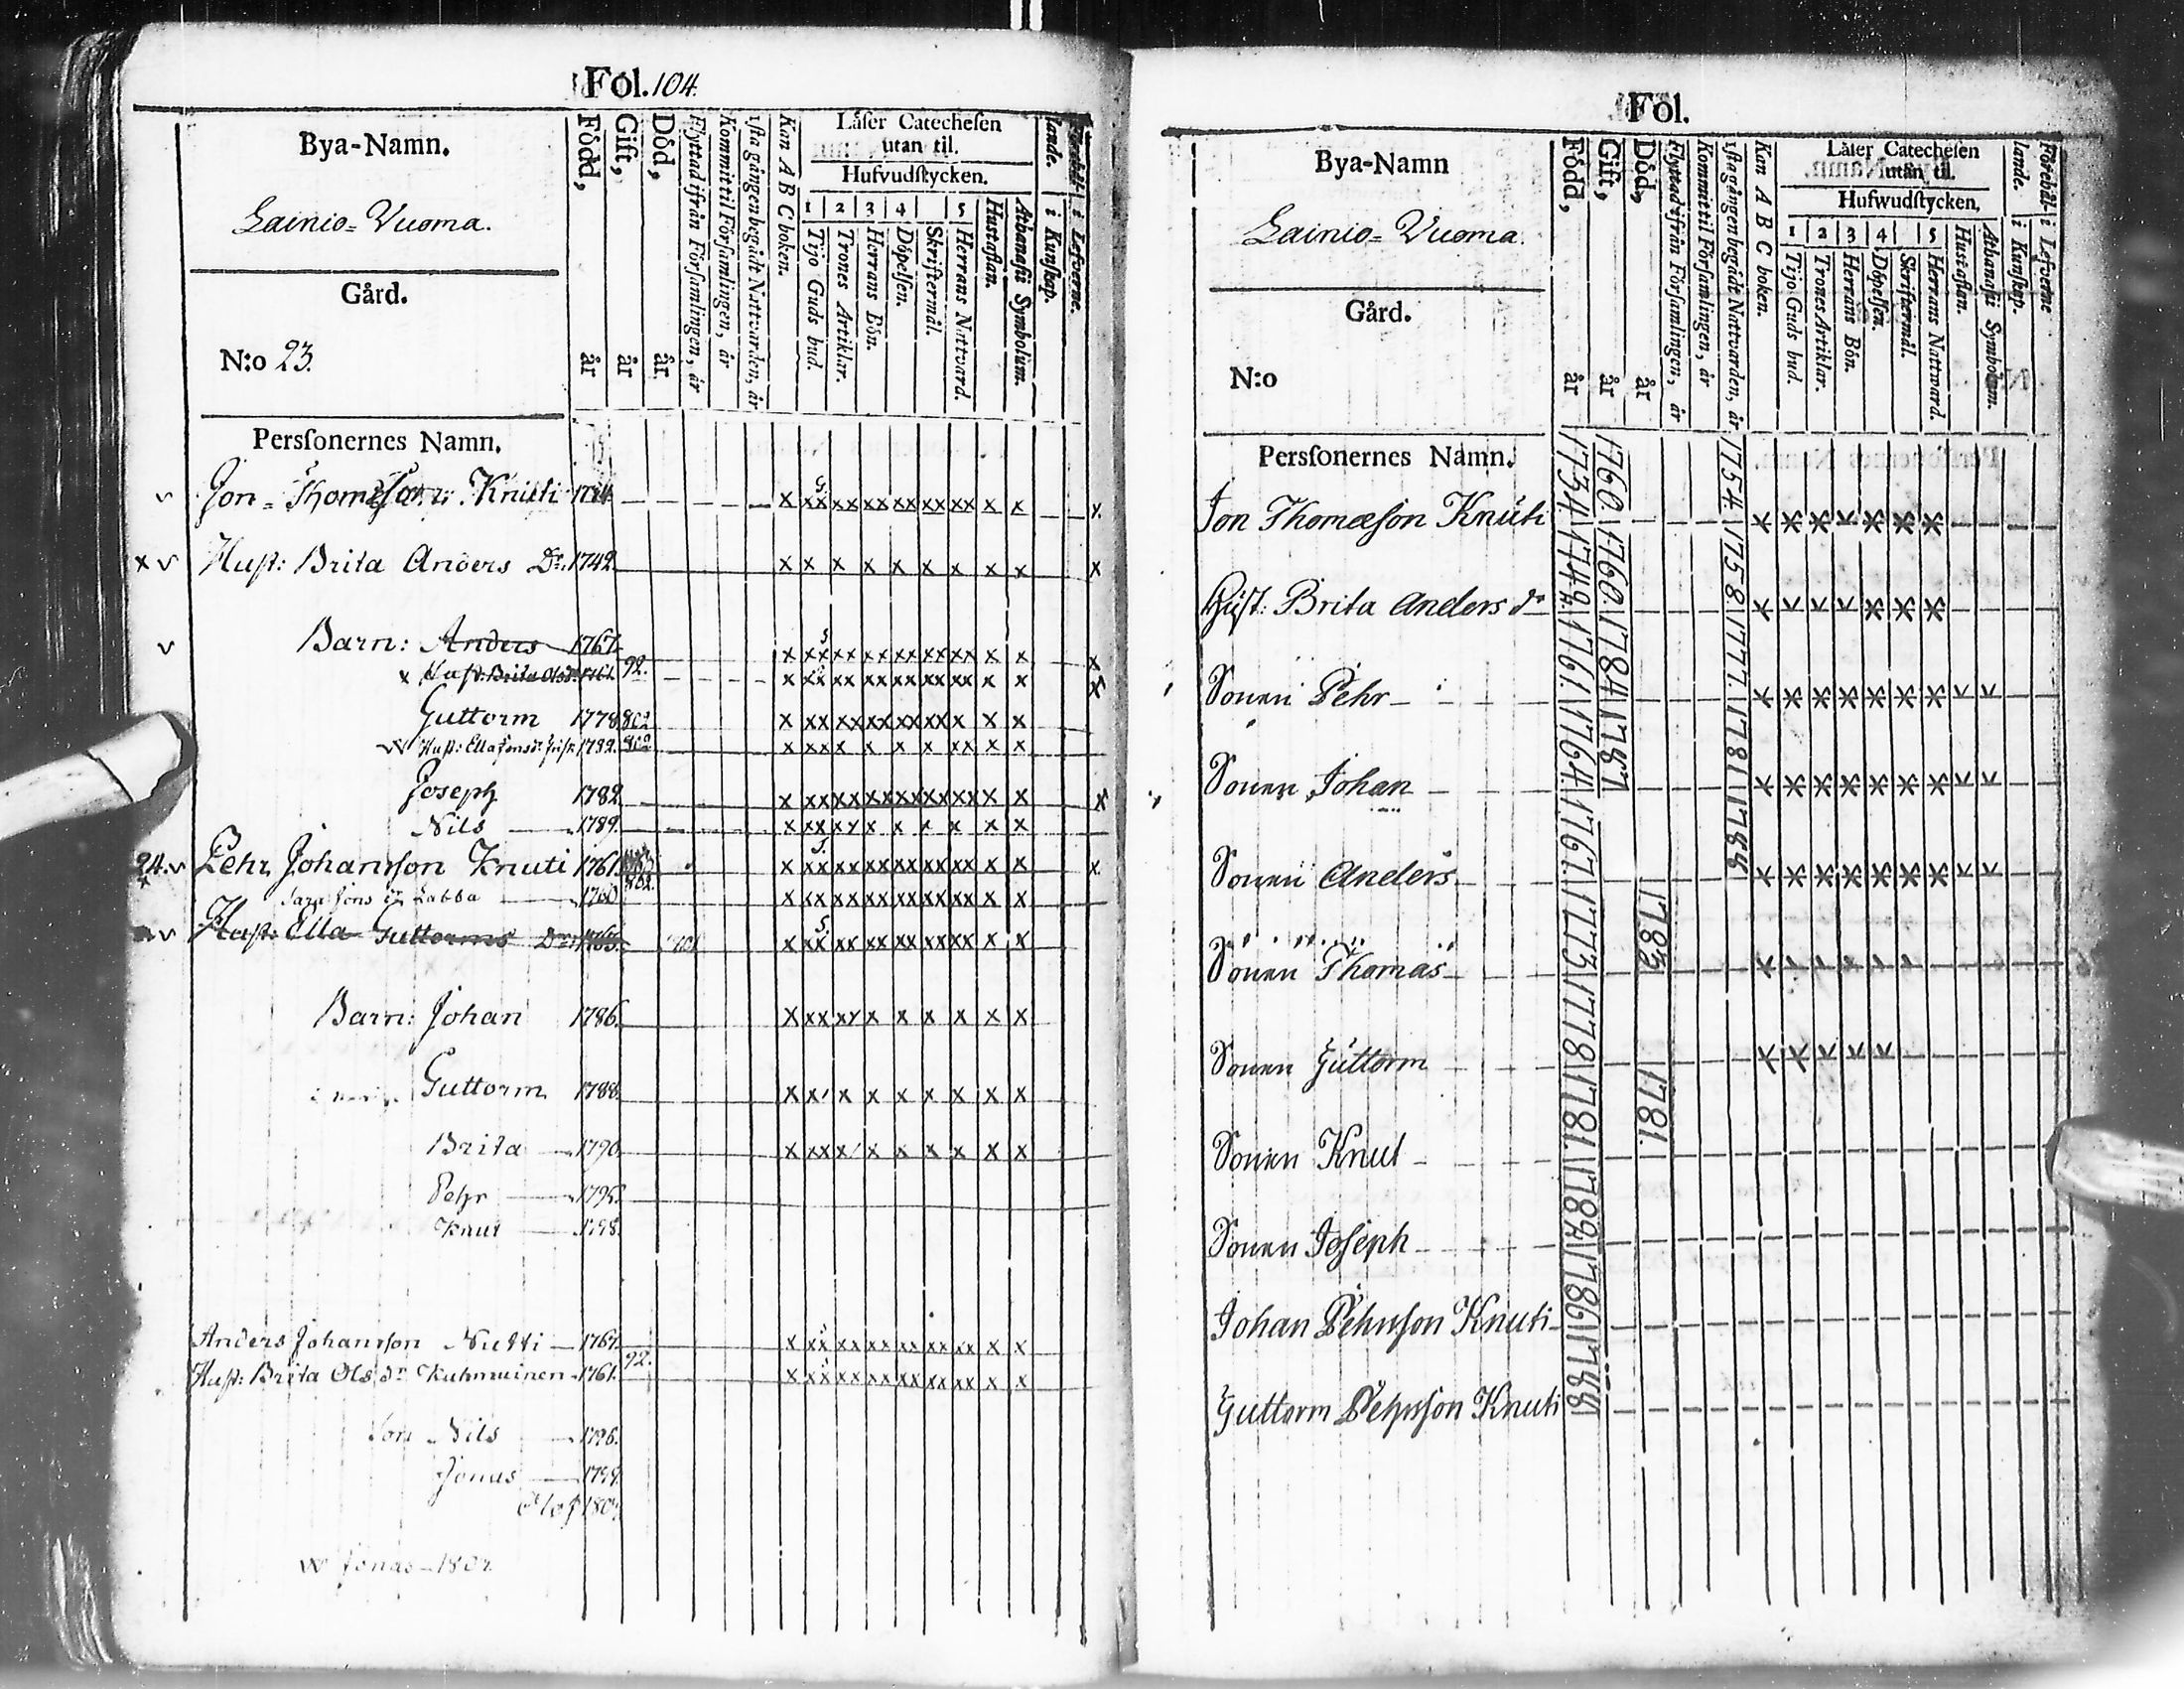 Fol. 104.
Bya-Namn.
Lainio=Vuoma.
Gård.
N:o 23.
Född, år
Gift, år
Död, år
Flyttad ifrån Förſamlingen, år
Kommit til Förſamlingen, år
ſta gången begådt Nattvarden, år
Kan A B C boken.
Låſer Catecheſen
utan til.
Hufvudſtycken.
1 2 3 4 5
Tijo Guds bud.
Trones Artiklar.
Herrans Bön.
Döpelſen.
Skriftermål.
Herrans Nattvard.
Huſtaflan.
Athanaſii Symbolum.
lande. i Kunſkap.
i Lefverne.
Perſonernes Namn.
Jon Knuti
Huſt: Brita Anders Dr. 1742.
Barn: Anders 1767.
x Huſt: Brita Olsdr. 1761. 92.
Guttorm 1778
Huſt: Ella Jonsdr
Joseph 1782
Nils 1789.
24. Pehr Johansſon Knuti 1761
Sara Jons dr Labba
Huſt: Ella Guttorms Dr 1765
Barn: Johan 1786.
Guttorm 1788.
Brita 1790.
Pehr 1795.
Knut 1798.
Anders Johansſon Nutti 1767.
Huſt: Brita Ols dr Kuhmuinen 1761. 92.
Son Nils 1796.
Jonas 1799.
Olof
Jonas 1802
Fol.
Bya-Namn
Lainio=Vuoma.
Gård.
N:o
Född, år
Gift, år
Död, år
Flyttad ifrån Förſamlingen, år
Kommit til Förſamlingen, år
ſta gången begådt Nattvarden, år
Kan A B C boken.
Låſer Catecheſen
utan til.
Hufwudſtycken.
1 2 3 4 5
Tijo Guds bud.
Trones Artiklar.
Herrans Bön.
Döpelſen.
Skriftermål.
Herrans Nattward.
Huſtaflan.
Athanaſii Symbolum.
Förehål-
lande. i Kunſkap.
i Lefverne
Perſonernes Namn.
Jon Thomæſon Knuti 1734. 1760. 1754.
Huſt: Brita Anders dr 1749. 1760. 1758.
Sonen Pehr 1761. 1784. 1777.
Sonen Johan 1764. 1787 1781
Sonen Anders 1767. 1784
Sonen Thomas 1773 1783
Sonen Guttorm 1778
Sonen Knut 1781 1781.
Sonen Joſeph 1782
Johan Pehrsſon Knuti 1786
Guttorm Pehrsſon Knuti 1788